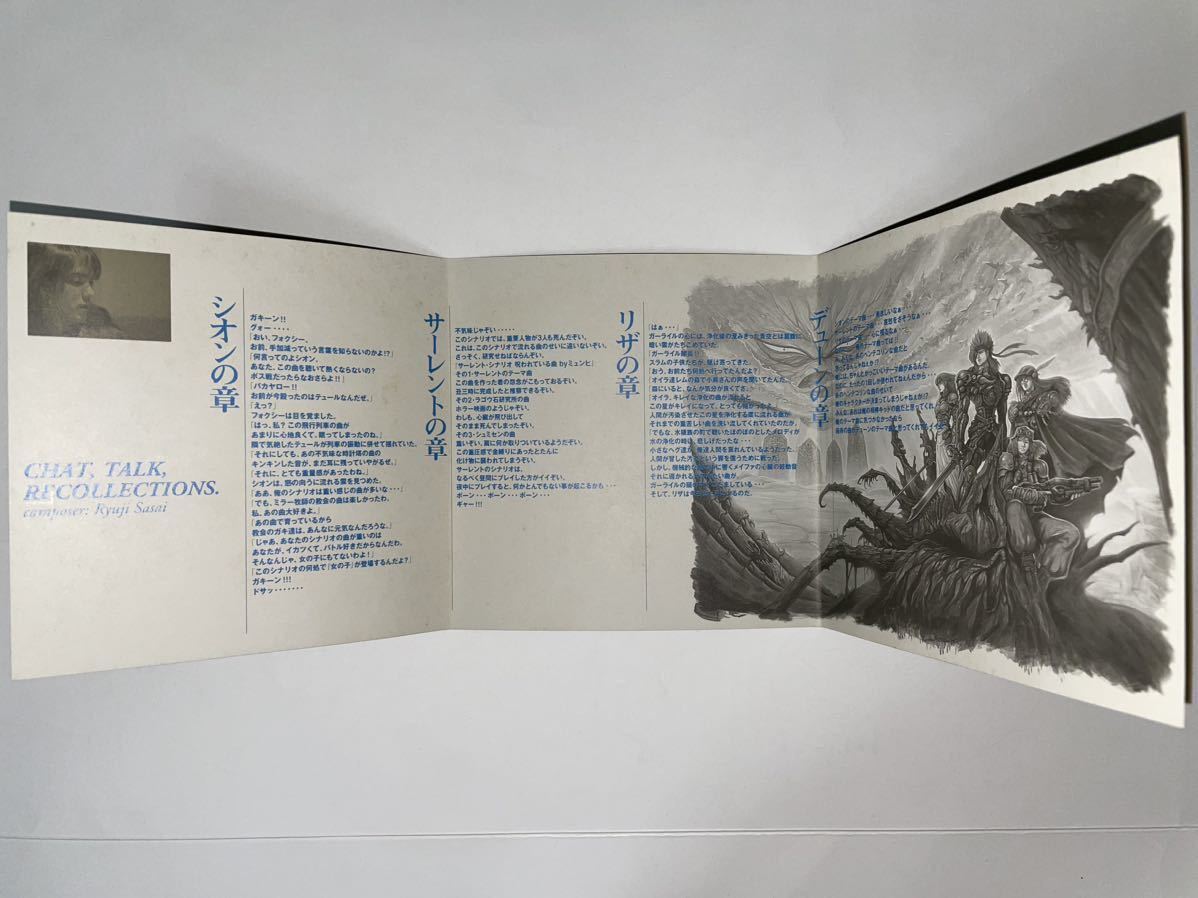 CHAT, TALK,
RECOLLECTIONS.
composer: Ryuji Sasai
シオンの章
ガキーン!!
グォー・・・・
「おい、フォクシー、
お前、手加減っていう言葉を知らないのかよ!?」
「何言ってのよシオン、
あなた、この曲を聴いて熱くならないの?
ボス戦だったらなおさらよ!!」
「バカヤロー!!
お前が今殴ったのはテュールなんだぜ。」
「えっ?」
フォクシーは目を覚ました。
「はっ、私?この飛行列車の曲が
あまりに心地良くて、眠ってしまったのね。」
隣で気絶したテュールが列車の振動に併せて揺れていた。
「それにしても、あの不気味な時計塔の曲の
キンキンした音が、まだ耳に残っていやがるぜ。」
「それに、とても重量感があったわね。」
シオンは、窓の向うに流れる雲を見つめた。
「ああ、俺のシナリオは重い感じの曲が多いな・・・」
「でも、ミラー牧師の教会の曲は楽しかったわ。
私、あの曲大好きよ。」
「あの曲で育っているから
教会のガキ達は、あんなに元気なんだろうな。」
「じゃあ、あなたのシナリオの曲が重いのは
あなたが、イカツくて、バトル好きだからなんだわ。
そんなんじゃ、女の子にもてないわよ!」
「このシナリオの何処で『女の子』が登場するんだよ?」
ガキーン!!!
ドサッ・・・・・・・
サーレントの章
不気味じゃぞい・・・・・・
このシナリオでは、重要人物が3人も死んだぞい。
これは、このシナリオで流れる曲のせいに違いないぞい。
さっそく、研究せねばならんぞい。
「サーレント・シナリオ 呪われている曲 byミュンヒ」
その1・サーレントのテーマ曲
この曲を作った者の怨念がこもっておるぞい。
丑三時に完成したと推察できるぞい。
その2・ラゴウ石研究所の曲
ホラー映画のようじゃぞい。
わしも、心臓が飛び出して
そのまま死んでしまったぞい。
その3・シュミセンの曲
重いぞい。肩に何か取りついているようだぞい。
この重圧感で金縛りにあったとたんに
化け物に襲われてしまうぞい。
サーレントのシナリオは、
なるべく昼間にプレイした方がイイぞい。
夜中にプレイすると、何かとんでもない事が起こるかも・・・
ボーン・・・ボーン・・・ボーン・・・
ギャー!!!
リザの章
「はぁ・・・」
ガーライルの心には、浄化後の澄みきった青空とは裏腹に
暗い霧がたちこめていた
「ガーライル隊長!!
スラムの子供たちが、駆け寄ってきた。
「おう、お前たち何処へ行ってたんだ?」
「オイラ達レムの森で小鳥さんの声を聞いてたんだ。
森にいると、なんか気分が良くてさ。」
「オイラ、キレイな浄化の曲が流れると
この星がキレイになって、とっても
人間が汚染させたこの星を浄化する度に流れる曲が
それまでの重苦しい曲を洗い流してくれていたのだが、
「でもな、水棲族の町で聴いたほのぼのとしたメロディが
水の浄化の時は、悲しげだったな・・・
小さなヘヴ達が、俺達人間を哀れんでいるようだった
人間が冒した
しかし、機械的な
メイファの心臓の鼓動音
それに
ガーライルの
そして、リザは
デューンの章
シオンのテーマ曲・・・勇ましいなぁ・・・